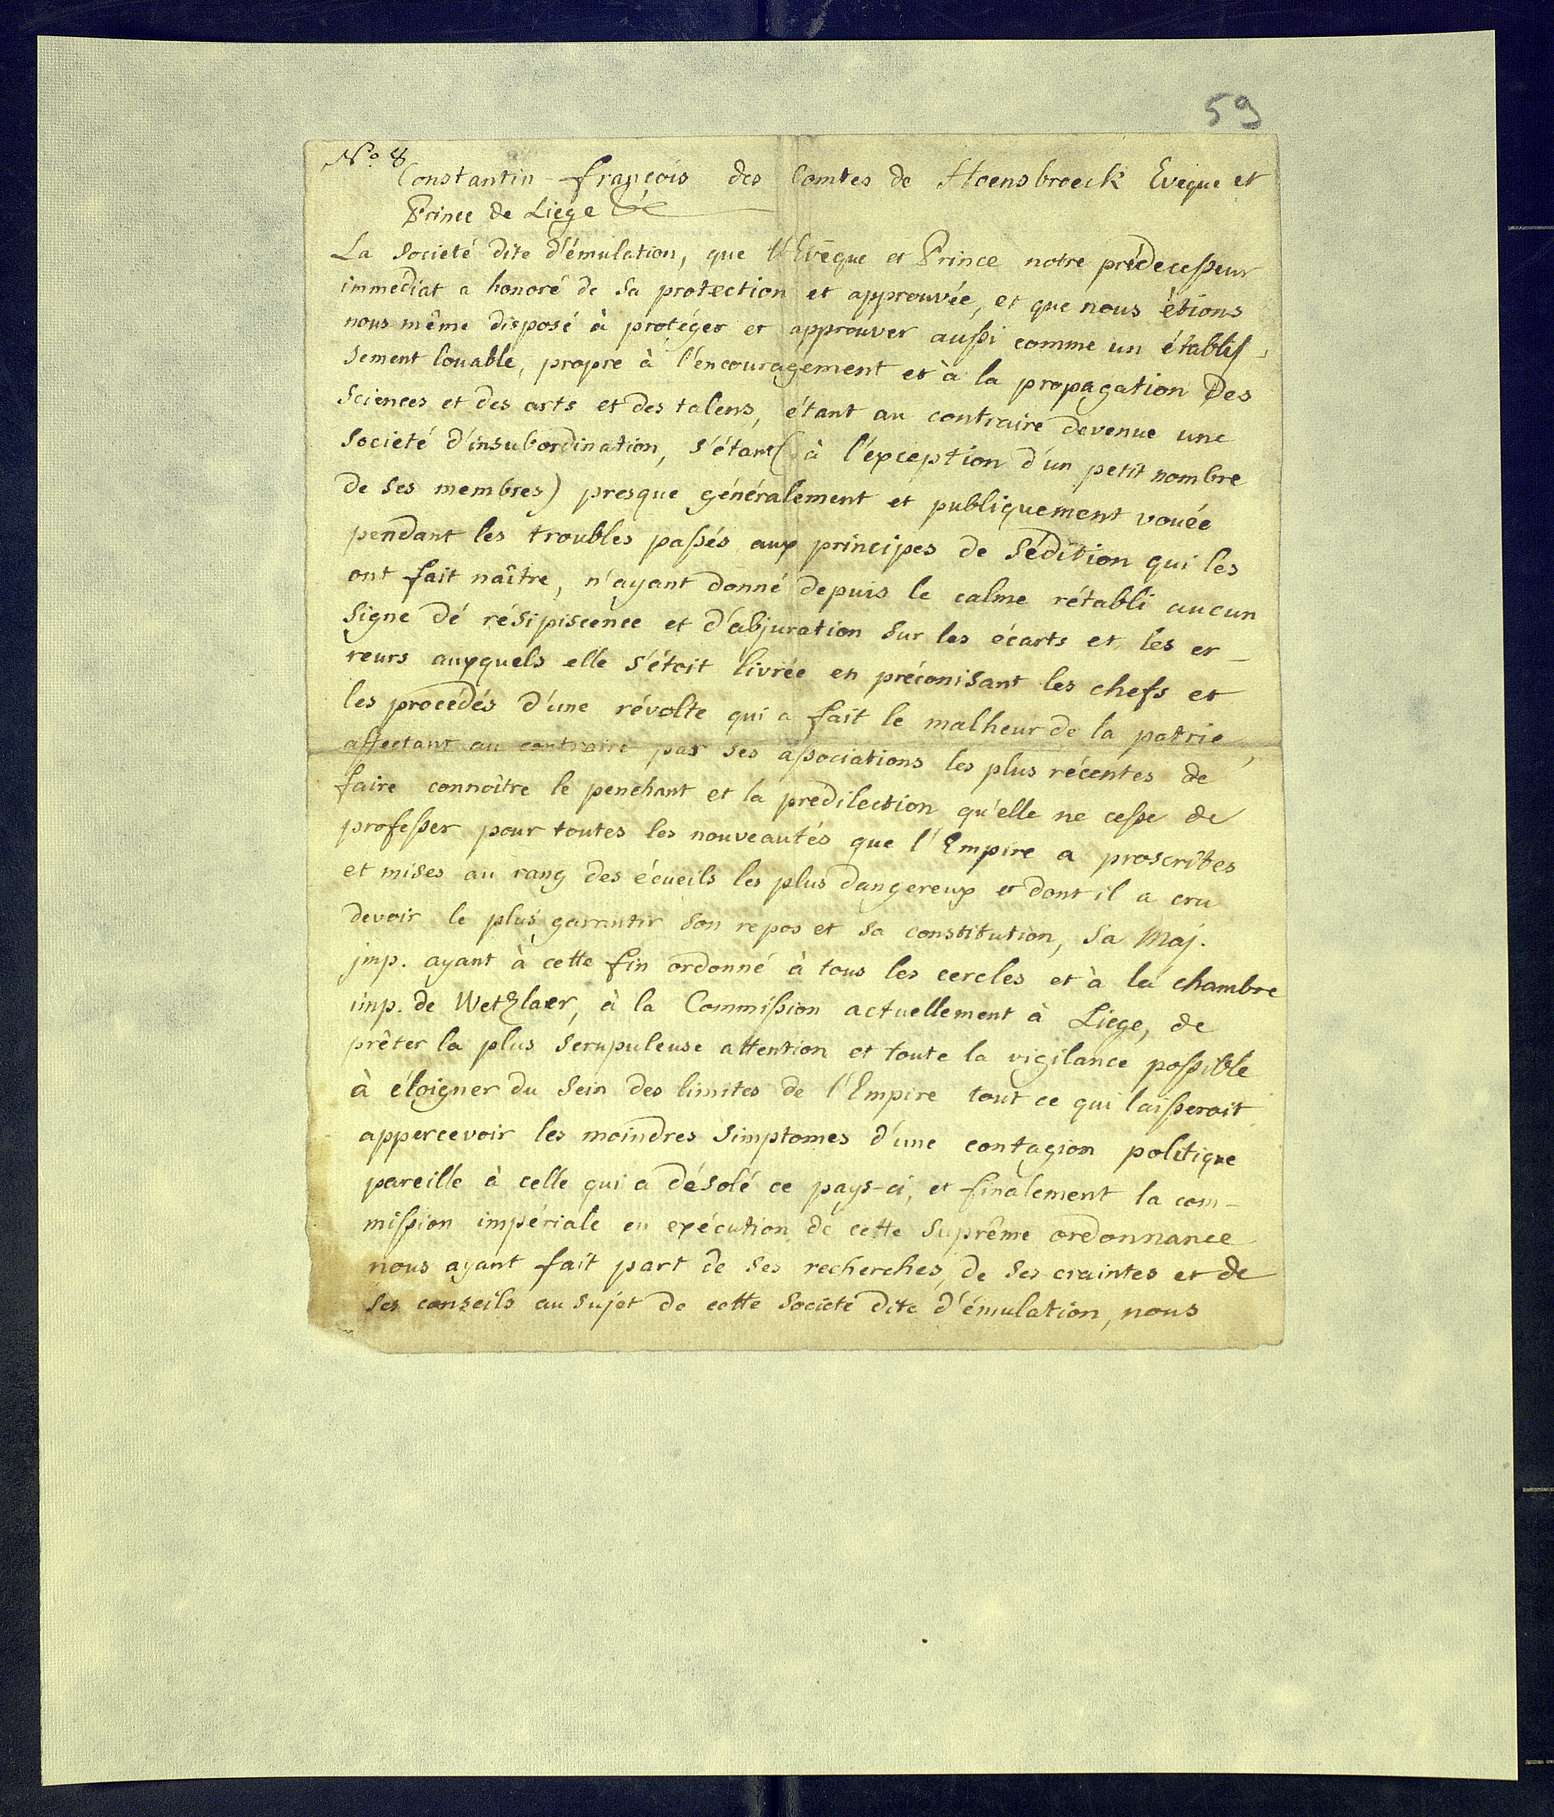 59
No. 8
Constantin-François des Comtes de Hoensbroeck Evêque et
Prince de Liege &c
La Societé dite d'émulation, que l'Evêque et Prince notre prédecesseur
immédiat a honoré de sa protection et approuvée, et que nous étions
nous même disposé à protéger et approuver aussi comme un établis-
sement louable, propre à l'encouragement et à la propagation des
Sciences et des arts et des talens, étant au contraire devenue une
Societé d'insubordination, s'étant (à l'exception d'un petit nombre
de ses membres) presque généralement et publiquement vouée
pendant les troubles passés aux principes de Sédition qui les
ont fait naître, n'ayant donné depuis le calme rétabli aucun
signe de résipiscence et d'abjuration sur les écarts et les er-
reurs auxquels elle s'étoit livrée en préconisant les chefs et
les procédés d'une révolte qui a fait le malheur de la patrie,
affectant au contraire par ses associations les plus récentes de
faire connoître le penchant et la prédilection qu'elle ne cesse de
professer pour toutes les nouveautés que l'Empire a proscrites
et mises au rang des écueils les plus dangereux et dont il a cru
devoir le plus garrantir son repos et sa constitution, Sa Maj.
jmp. ayant à cette fin ordonné à tous les cercles et à la chambre
imp. de Wetzlaer, à la Commission actuellement à Liege, de
prêter la plus scrupuleuse attention et toute la vigilance possible
à éloigner du sein des limites de l'Empire tout ce qui laisseroit
appercevoir les moindres simptomes d'une contagion politique
pareille à celle qui a désolé ce pays-ci, et finalement la com-
mission impériale en exécution de cette suprême ordonnance
nous ayant fait part de ses recherches, de ses craintes et de
ses conseils au sujet de cette Societé dite d'émulation, nous